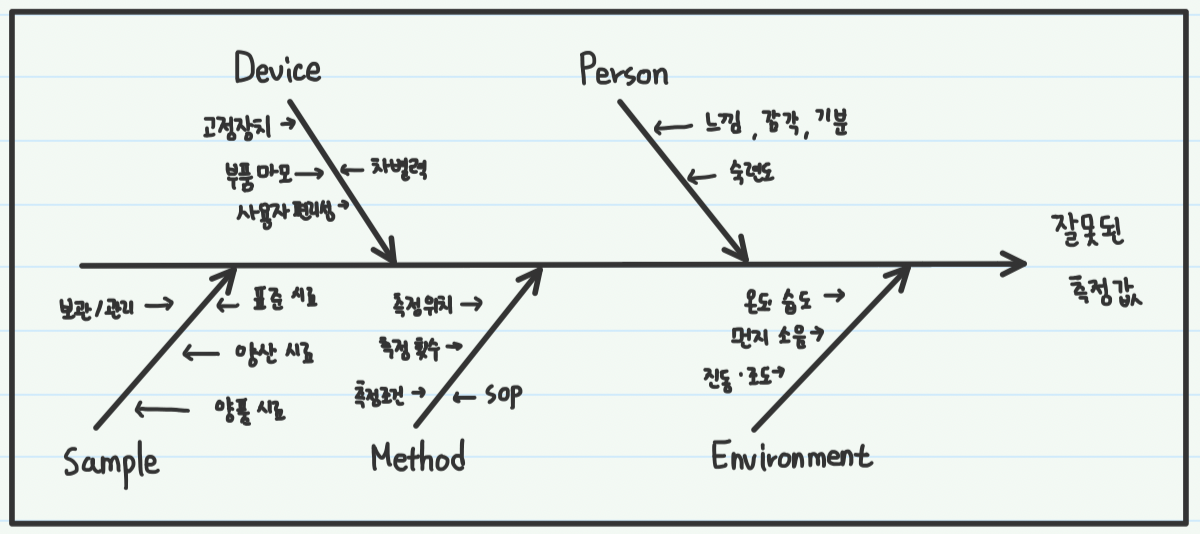 Device
고정장치
부품 마모
차별력
사용자 편리성
Person
느낌, 감각, 기분
숙련도
잘못된
측정값
보관/관리
표준 시료
양산 시료
양품 시료
Sample
측정위치
측정 횟수
측정조건
SOP
Method
온도 습도
먼지 소음
진동·조도
Environment